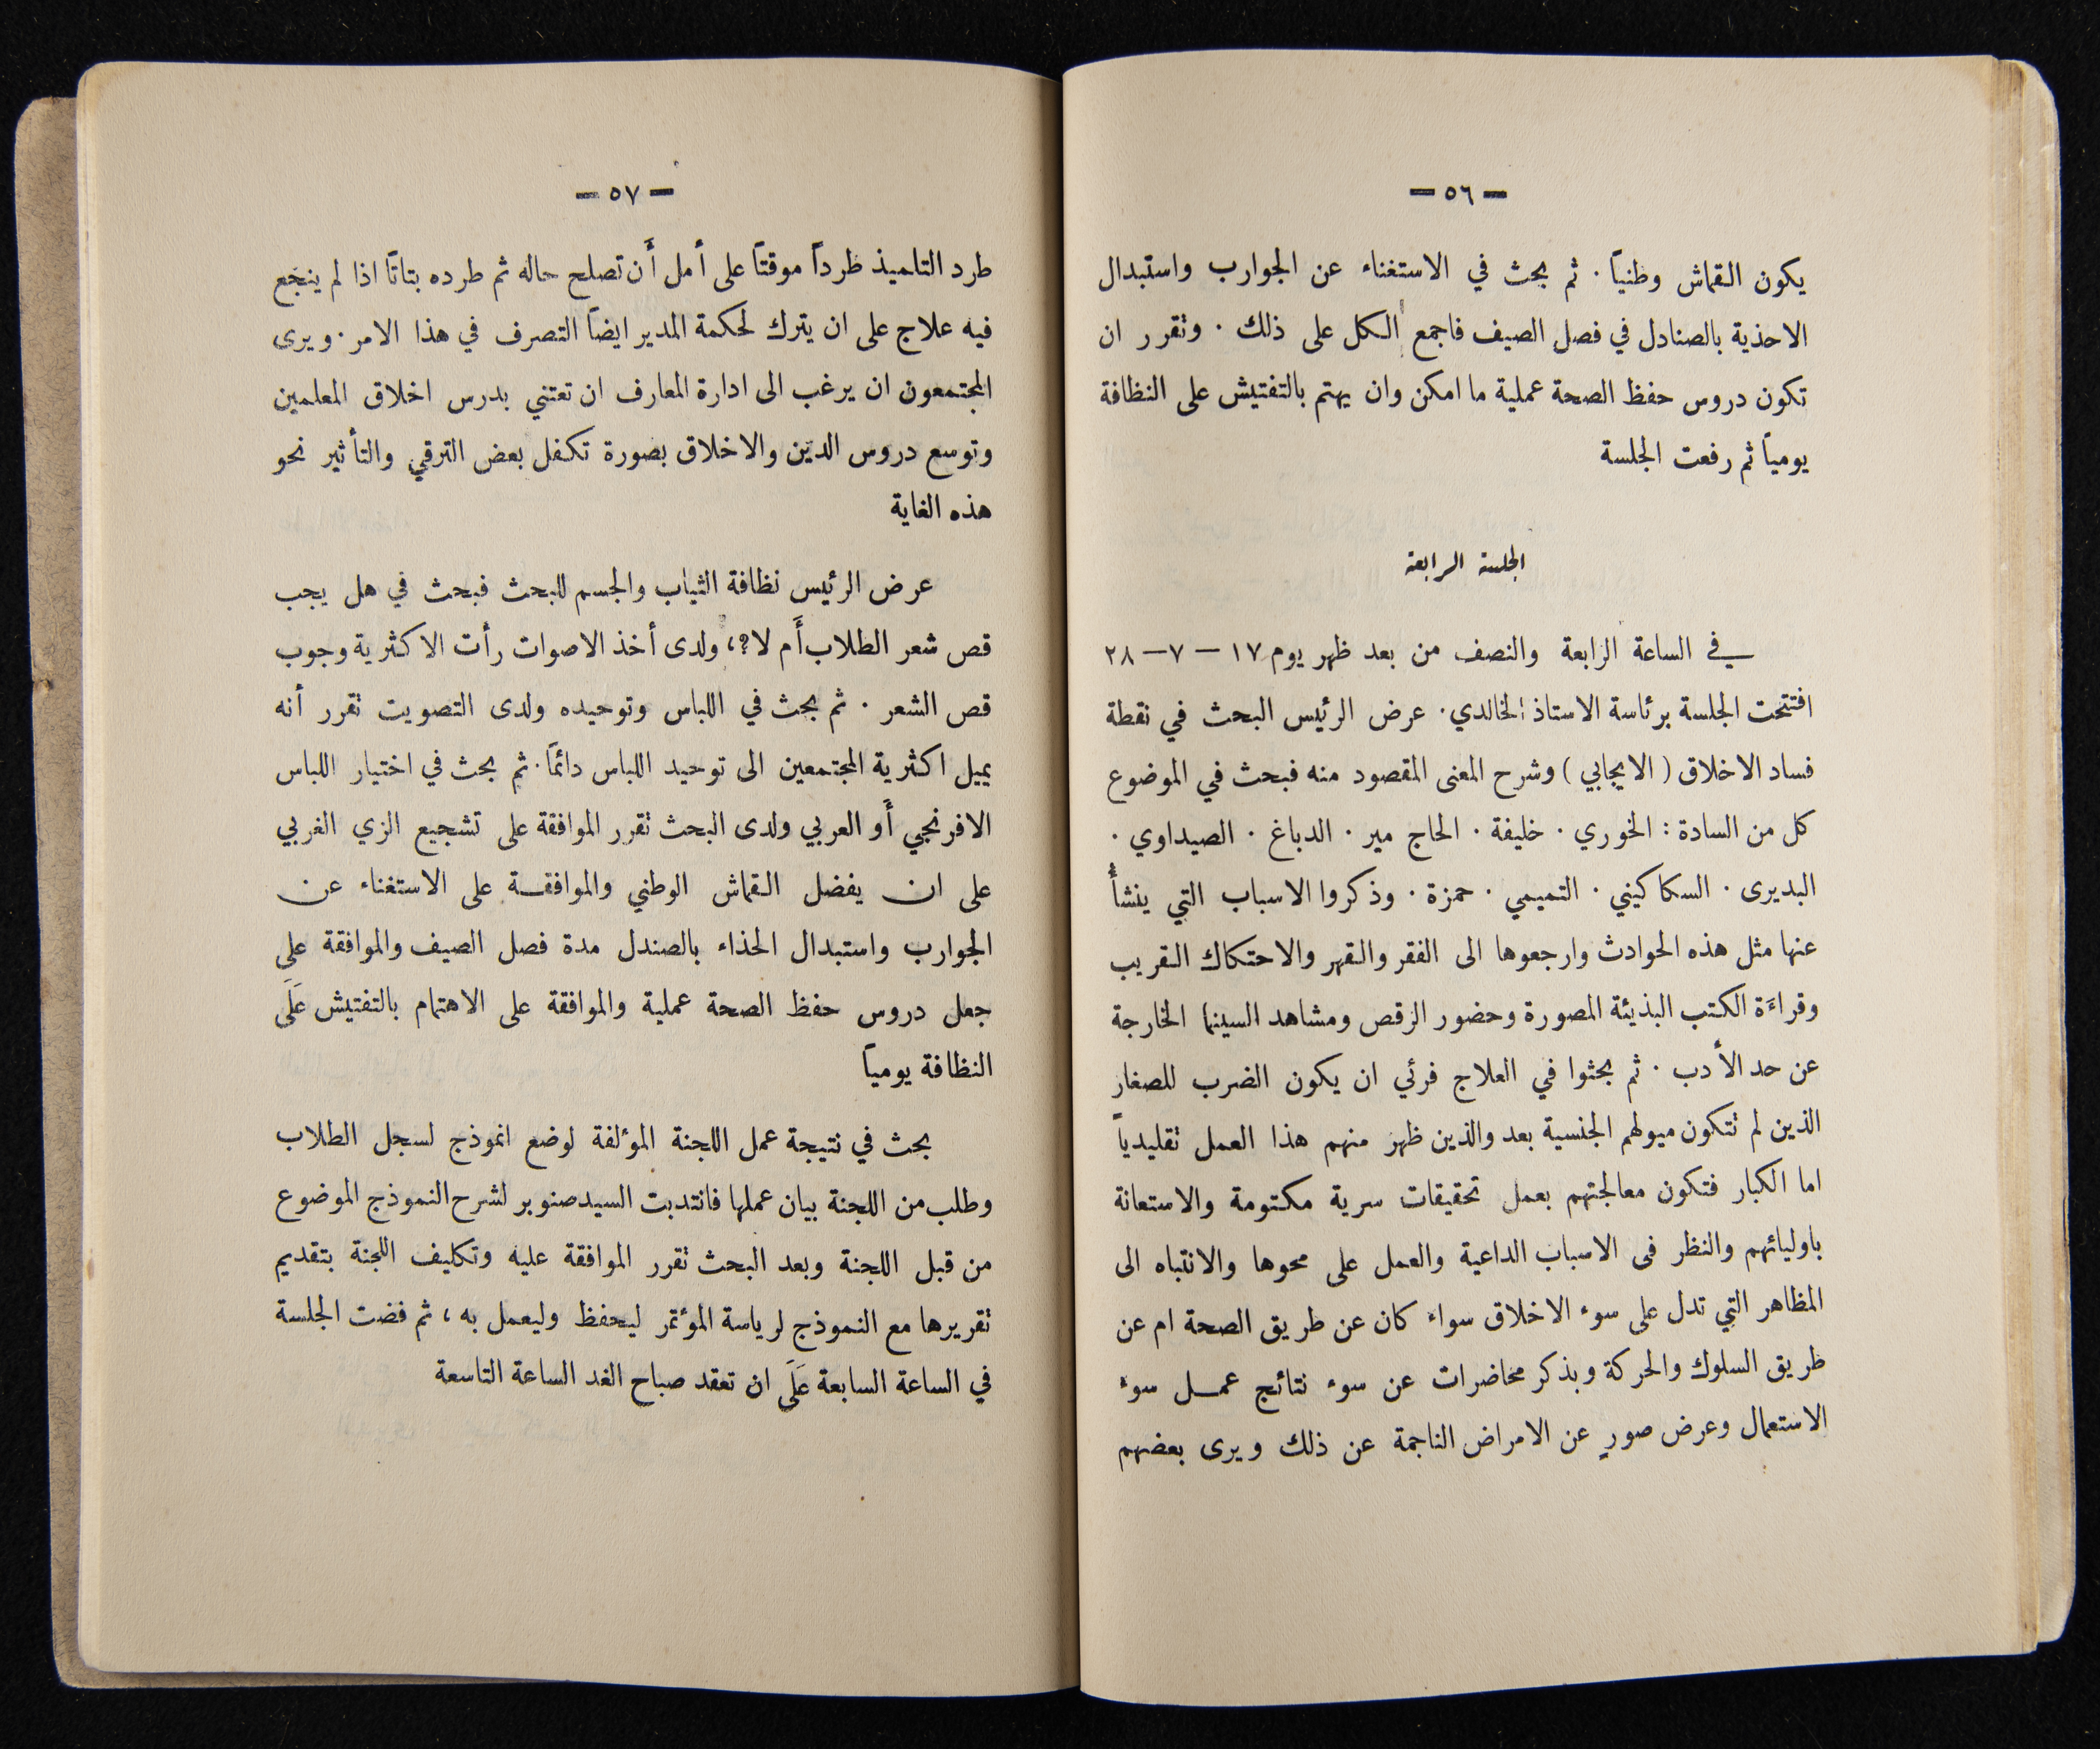 — ٥٦ —
يكون القماش وطنياً . ثم بحث في الاستغناء عن الجوارب واستبدال
الاحذية بالصنادل في فصل الصيف فاجمع الكل على ذلك . وتقرر ان
تكون دروس حفظ الصحة عملية ما امكن وان يهتم بالتفتيش على النظافة
يومياً ثم رفعت الجلسة
الجلسة الرابعة
في الساعة الرابعة والنصف من بعد ظهر يوم ١٧ — ٧ — ٢٨
افتتحت الجلسة برئاسة الاستاذ الخالدي . عرض الرئيس البحث في نقطة
فساد الاخلاق ( الايجابي ) وشرح المعنى المقصود منه فبحث في الموضوع
كل من السادة : الخوري . خليفة . الحاج مير . الدباغ . الصيداوي .
البديرى . السكاكيني . التميمي . حمزة . وذكروا الاسباب التي ينشأ
عنها مثل هذه الحوادث وارجعوها الى الفقر والقهر والاحتكاك القريب
وقراءَة الكتب البذيئة المصورة وحضور الرقص ومشاهد السينما الخارجة
عن حد الأدب . ثم بحثوا في العلاج فرئي ان يكون الضرب للصغار
الذين لم تتكون ميولهم الجنسية بعد والذين ظهر منهم هذا العمل تقليدياً
اما الكبار فتكون معالجتهم بعمل تحقيقات سرية مكتومة والاستعانة
باوليائهم والنظر فى الاسباب الداعية والعمل على محوها والانتباه الى
المظاهر التي تدل على سوء الاخلاق سواء كان عن طريق الصحة ام عن
طريق السلوك والحركة وبذكر محاضرات عن سوء نتائج عمل سوء
الاستعمال وعرض صورٍ عن الامراض الناجمة عن ذلك ويرى بعضهم
— ٥٧ —
طرد التلميذ طرداً موقتاً على أمل أَن تصلح حاله ثم طرده بتاتاً اذا لم ينجع
فيه علاج على ان يترك لحكمة المدير ايضاً التصرف في هذا الامر . ويرى
المجتمعون ان يرغب الى ادارة المعارف ان تعتني بدرس اخلاق المعلمين
وتوسع دروس الدين والاخلاق بصورة تكفل بعض الترقي والتأثير نحو
هذه الغاية
عرض الرئيس نظافة الثياب والجسم للبحث فبحث في هل يجب
قص شعر الطلاب أَم لا؟، ولدى أخذ الاصوات رأت الاكثرية وجوب
قص الشعر . ثم بحث في اللباس وتوحيده ولدى التصويت تقرر أنه
يميل اكثرية المجتمعين الى توحيد اللباس دائماً . ثم بحث في اختيار اللباس
الافرنجي أَو العربي ولدى البحث تقرر الموافقة على تشجيع الزي الغربي
على ان يفضل القماش الوطني والموافقة على الاستغناء عن
الجوارب واستبدال الحذاء بالصندل مدة فصل الصيف والموافقة على
جعل دروس حفظ الصحة عملية والموافقة على الاهتمام بالتفتيش عَلَى
النظافة يومياً
بحث في نتيجة عمل اللجنة المؤلفة لوضع انموذج لسجل الطلاب
وطلب من اللجنة بيان عملها فانتدبت السيد صنوبر لشرح النموذج الموضوع
من قبل اللجنة وبعد البحث تقرر الموافقة عليه وتكليف اللجنة بتقديم
تقريرها مع النموذج لرياسة المؤتمر ليحفظ وليعمل به ، ثم فضت الجلسة
في الساعة السابعة عَلَى ان تعقد صباح الغد الساعة التاسعة